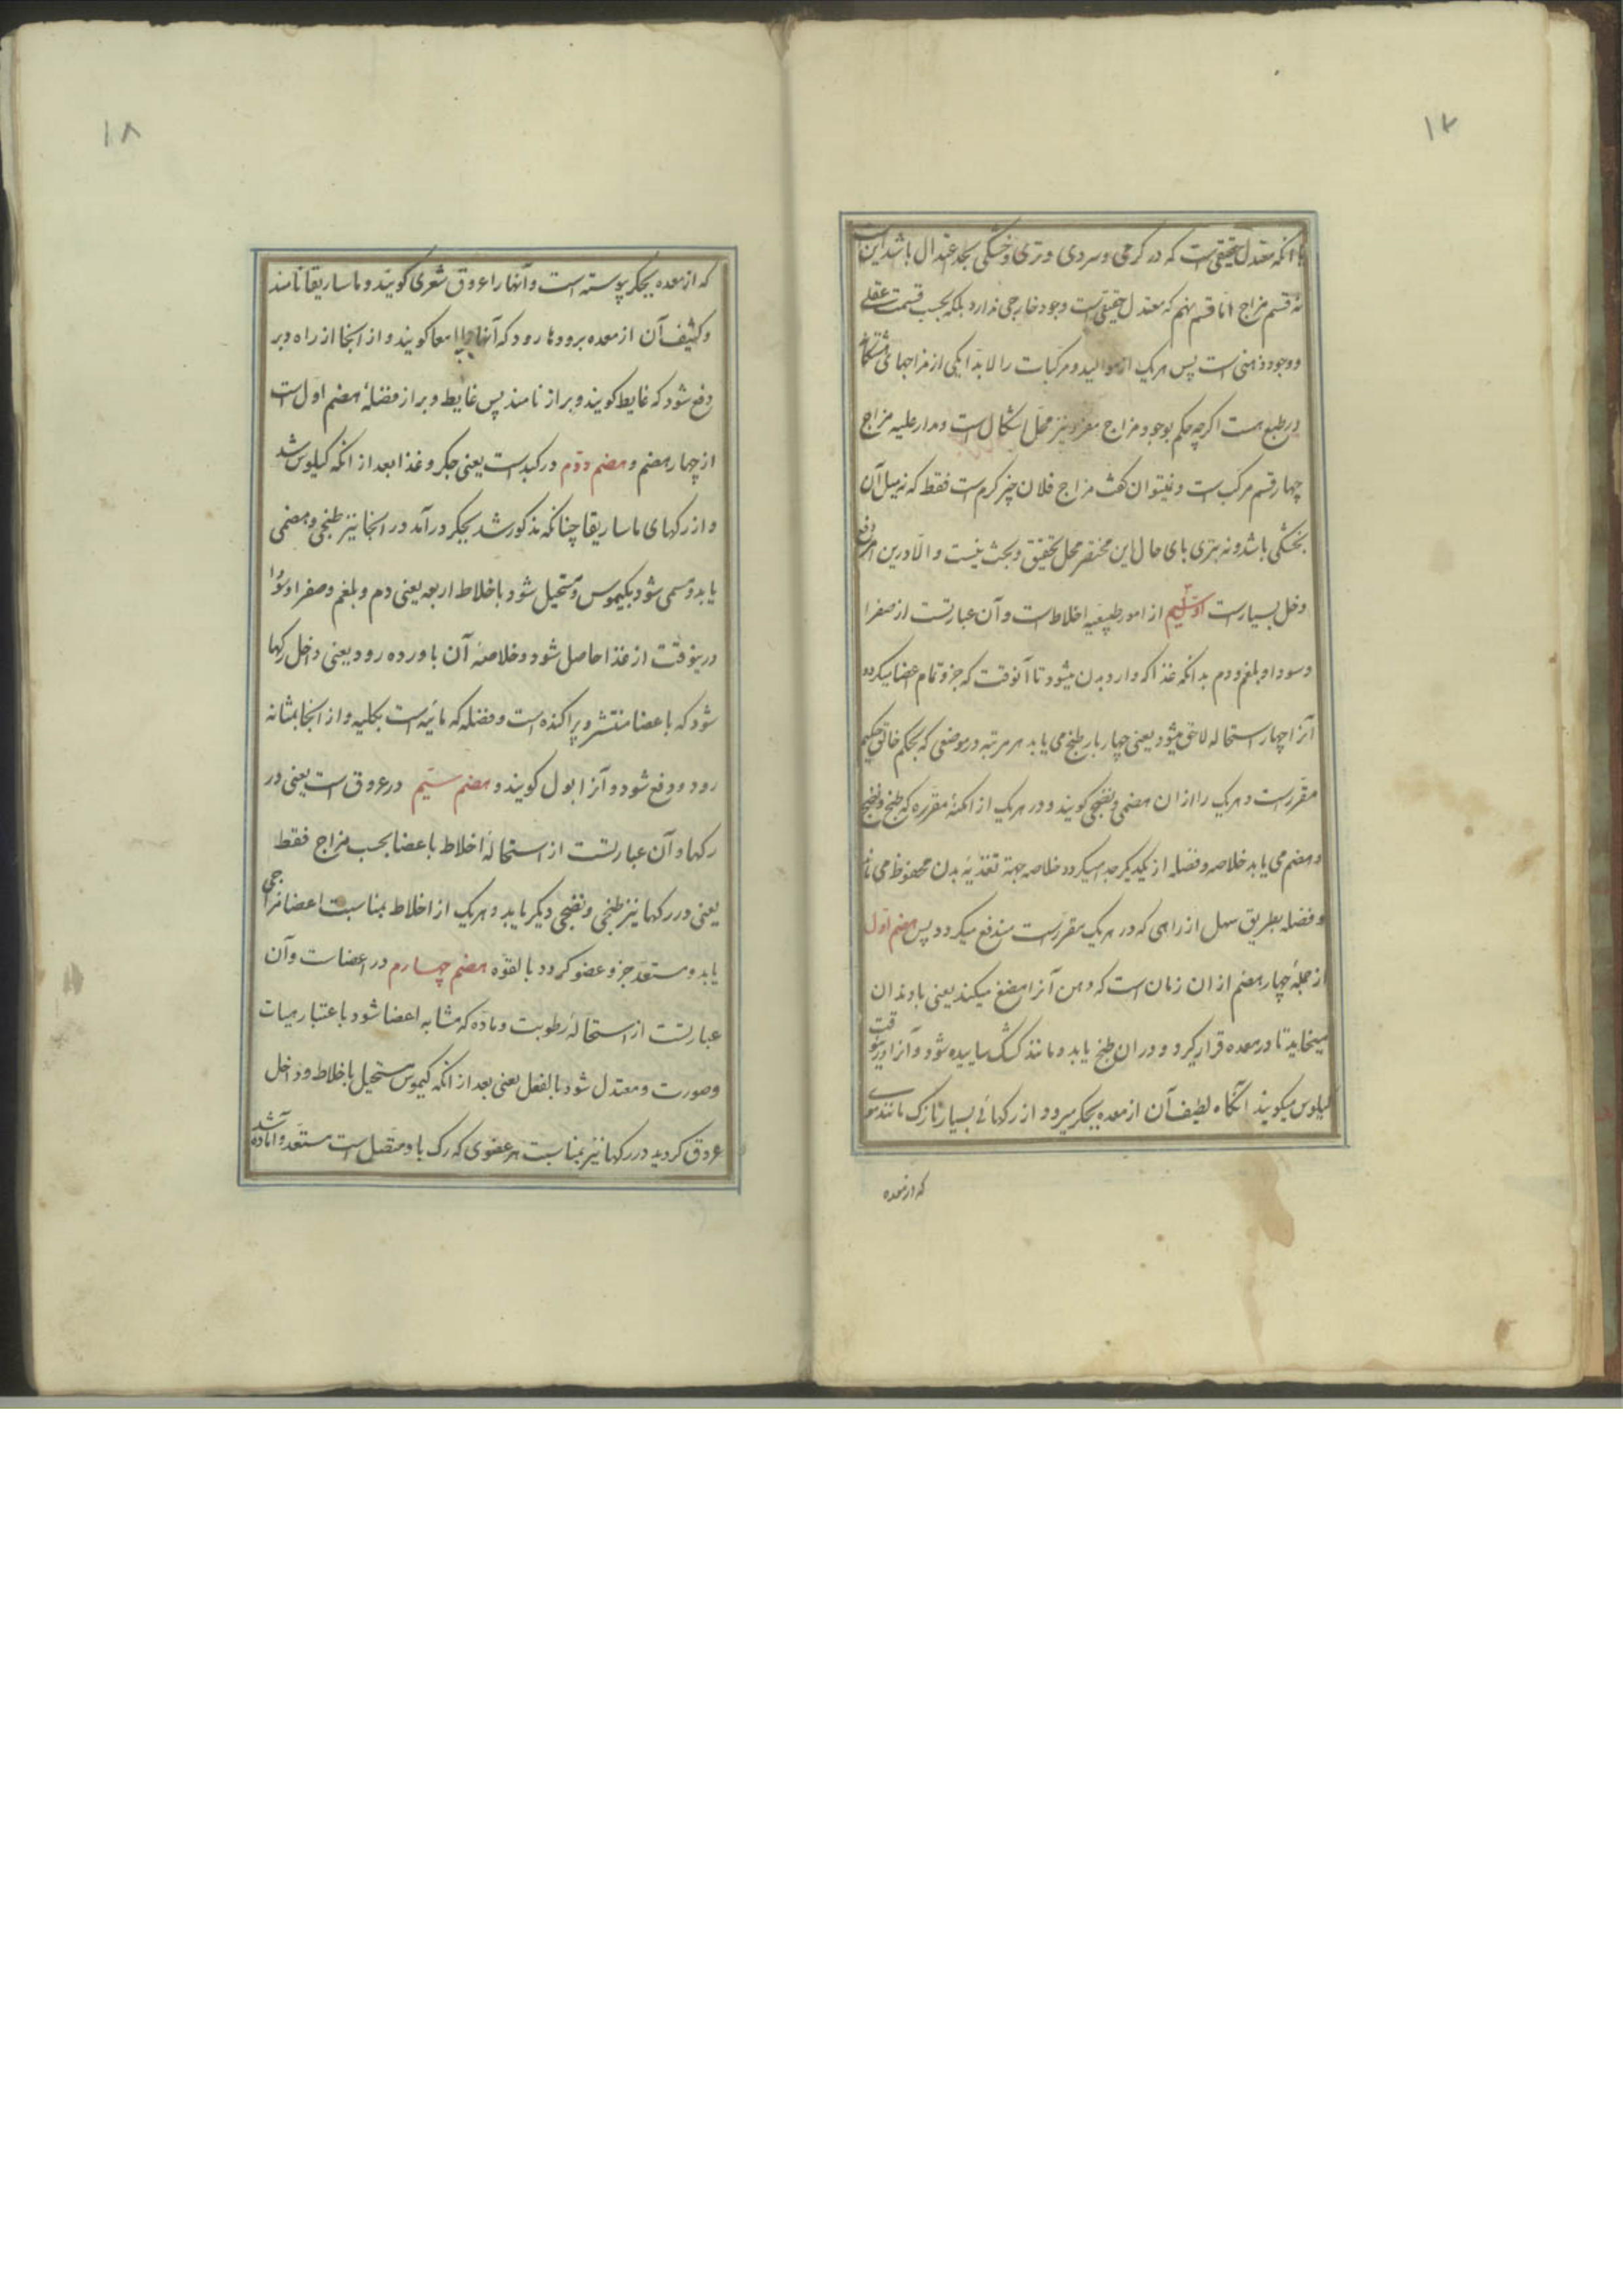 ۱۷
یا آنکه معتدل حقیقی است که در گرمی و سردی و تری و خشکی بحد اعتدال باشد این است
نه قسم مزاج اما قسم نهم که معتدل حقیقی است وجود خارجی ندارد بلکه بحسب قسمت عقلی
و وجود ذهنی است پس هر یک از موالید و مرکبات را لابد است یکی از مزاجهای هشتگانه
در طبع هست اگرچه حکم بوجود مزاج مفرد نیز محل اشکال است و مدار علیه مزاج
چهار قسم مرکب است و نمیتوان گفت مزاج فلان چیز گرم است فقط که نه میل آن
بخشکی باشد و نه بتری بای حال این مختصر محل تحقیق و بحث نیست و الا درین امر دفع
دخل بسیار است سیم از امور طبیعیه اخلاط است و آن عبارتست از صفرا
و سودا و بلغم و دم بدانکه غذا که وارد بدن میشود تا آنوقت که جزو تمام اعضا میگردد
آنرا چهار استحاله لاحق میشود یعنی چهار بار طبخ می یابد هر مرتبه در موضعی که بحکم خالق حکیم
مقرر است و هر یک را ازان هضمی و نضجی گویند و در هر یک از امکنهٔ مقرره که طبخ و نضج
و هضم می یابد خلاصه و فضله از یکدیگر جدا میگردد خلاصه جهة تغذیهٔ بدن محفوظ می ماند
و فضله بطریق سهل از راهی که در هر یک مقرر است مندفع میگردد پس هضم اول
از جملهٔ چهار هضم از ان زمان است که دهن آنرا مضغ میکند یعنی با دندان
میخاید تا در معده قرار گیرد و در ان طبخ یابد و مانند کشک ساییده شود و آنرا درینوقت
کیلوس میگویند آنگاه لطیف آن از معده بجگر میرود از رگهائی بسیار نازک مانند موی
که از معده
۱۸
که از معده بجگر پیوسته است و آنها را عروق شعری گویند و ماساریقا نامند
و کثیف آن از معده برودها رود که آنها را امعا گویند و از آنجا از راه دبر
دفع شود که غایط گویند و براز نامند پس غایط و براز فضلهٔ هضم اول است
از چهار هضم و هضم دوم در کبد است یعنی جگر و غذا بعد از آنکه کیلوس شد
و از رگهای ماساریقا چنانکه مذکور شد بجگر درآمد در آنجا نیز طبخی و هضمی
یابد و مسمی شود بکیموس و مستحیل شود باخلاط اربعه یعنی دم و بلغم و صفرا و سودا
درینوقت از غذا حاصل شود و خلاصهٔ آن باورده رود یعنی داخل رگها
شود که باعضا منتشر و پراکنده است و فضله که مائیه است بکلیه و از آنجا بمثانه
رود و دفع شود و آنرا بول گویند و هضم سیم در عروق است یعنی در
رگها و آن عبارتست از استحالهٔ اخلاط باعضا بحسب مزاج فقط
یعنی در رگها نیز طبخی و نضجی دیگر یابد و هر یک از اخلاط بمناسبت اعضا مزاجی
یابد و مستعد جزو عضو گردد بالقوه هضم چهارم در اعضاست و آن
عبارتست از استحالهٔ رطوبت و ماده که مشابه اعضا شود باعتبار هیات
و صورت و معتدل شود بالفعل یعنی بعد از آنکه کیموس مستحیل باخلاط و داخل
عروق گردید در رگها نیز بمناسبت هر عضوی که رگ باو متصل است مستعد و آماده شد